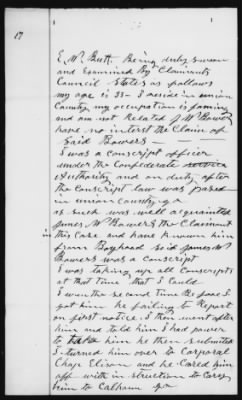 17
E. M. Butt. Being duly sworn
and Examined By Claimants
Council States as follows
my age is 33 - I reside in union
County my occupation is faming
and am not Related J M Bowers
have no interst the Claim of
Said Bowers —
I was a conscript officer
under the Confederate
Authority and on duty after
the Conscript law was passed
in union County ga
as such was well acquainted
James M Bowers the Claimant
in this case and have known him
from Boyhood said James M
Bowers was a conscript
I was taking up all Conscripts
at that time that I could
I was the second time Before I
got him he failing to Report
on first notice. I then went after
him and told him I had power
to take him he then submitted
I turned him over to Corporal
Chap Elison and he Caried him
off with instruction to Carry
him to Calhoun ga